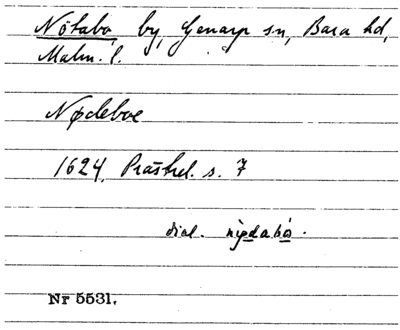 Nötabo by, Genarp sn, Bara hd,
Malm. l.
Nødeboe
1624. Prästrel. s. 7
dial.
Nr 5531.